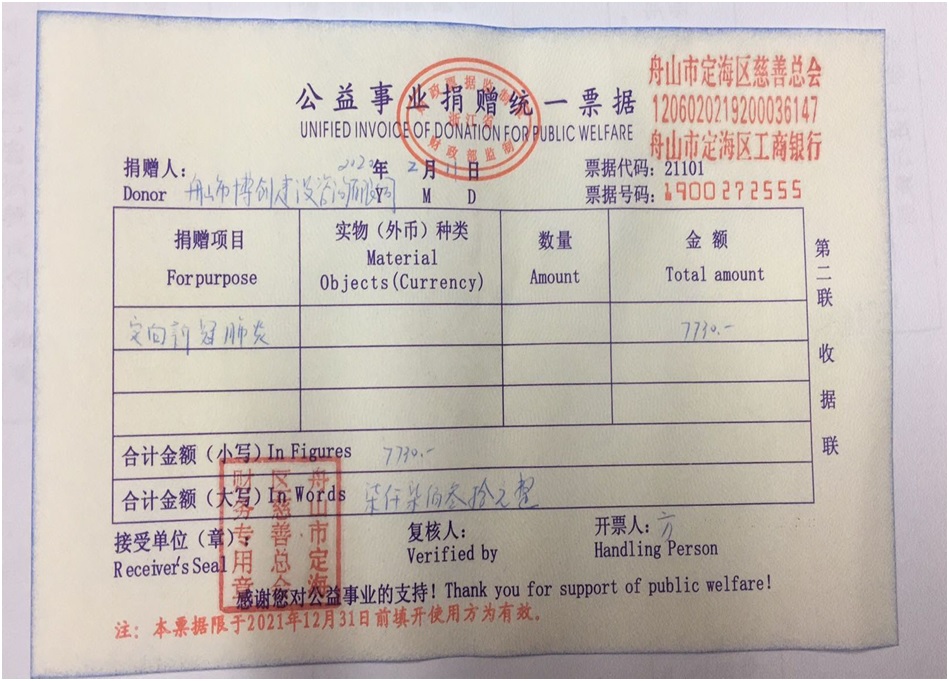 公益事业捐赠统一票据
UNIFIED INVOICE OF DONATION FOR PUBLIC WELFARE
财政票据监制章
浙江省
财政部监制
舟山市定海区慈善总会
1206020219200036147
舟山市定海区工商银行
捐赠人： 2020年 2月 11日
Donor 舟山市博创建设咨询有限公司 Y M D
票据代码：21101
票据号码：1900272555
捐赠项目 实物（外币）种类 数量 金 额
For purpose Material Objects(Currency) Amount Total amount
定向新冠肺炎 7730.-
合计金额（小写）In Figures 7730.-
合计金额（大写）In Words 柒仟柒佰叁拾元整
接受单位（章）： 复核人： 开票人：方
Receiver's Seal Verified by Handling Person
舟山市定海区慈善总会财务专用章
感谢您对公益事业的支持！Thank you for support of public welfare!
注：本票据限于2021年12月31日前填开使用方为有效。
第二联 收据联